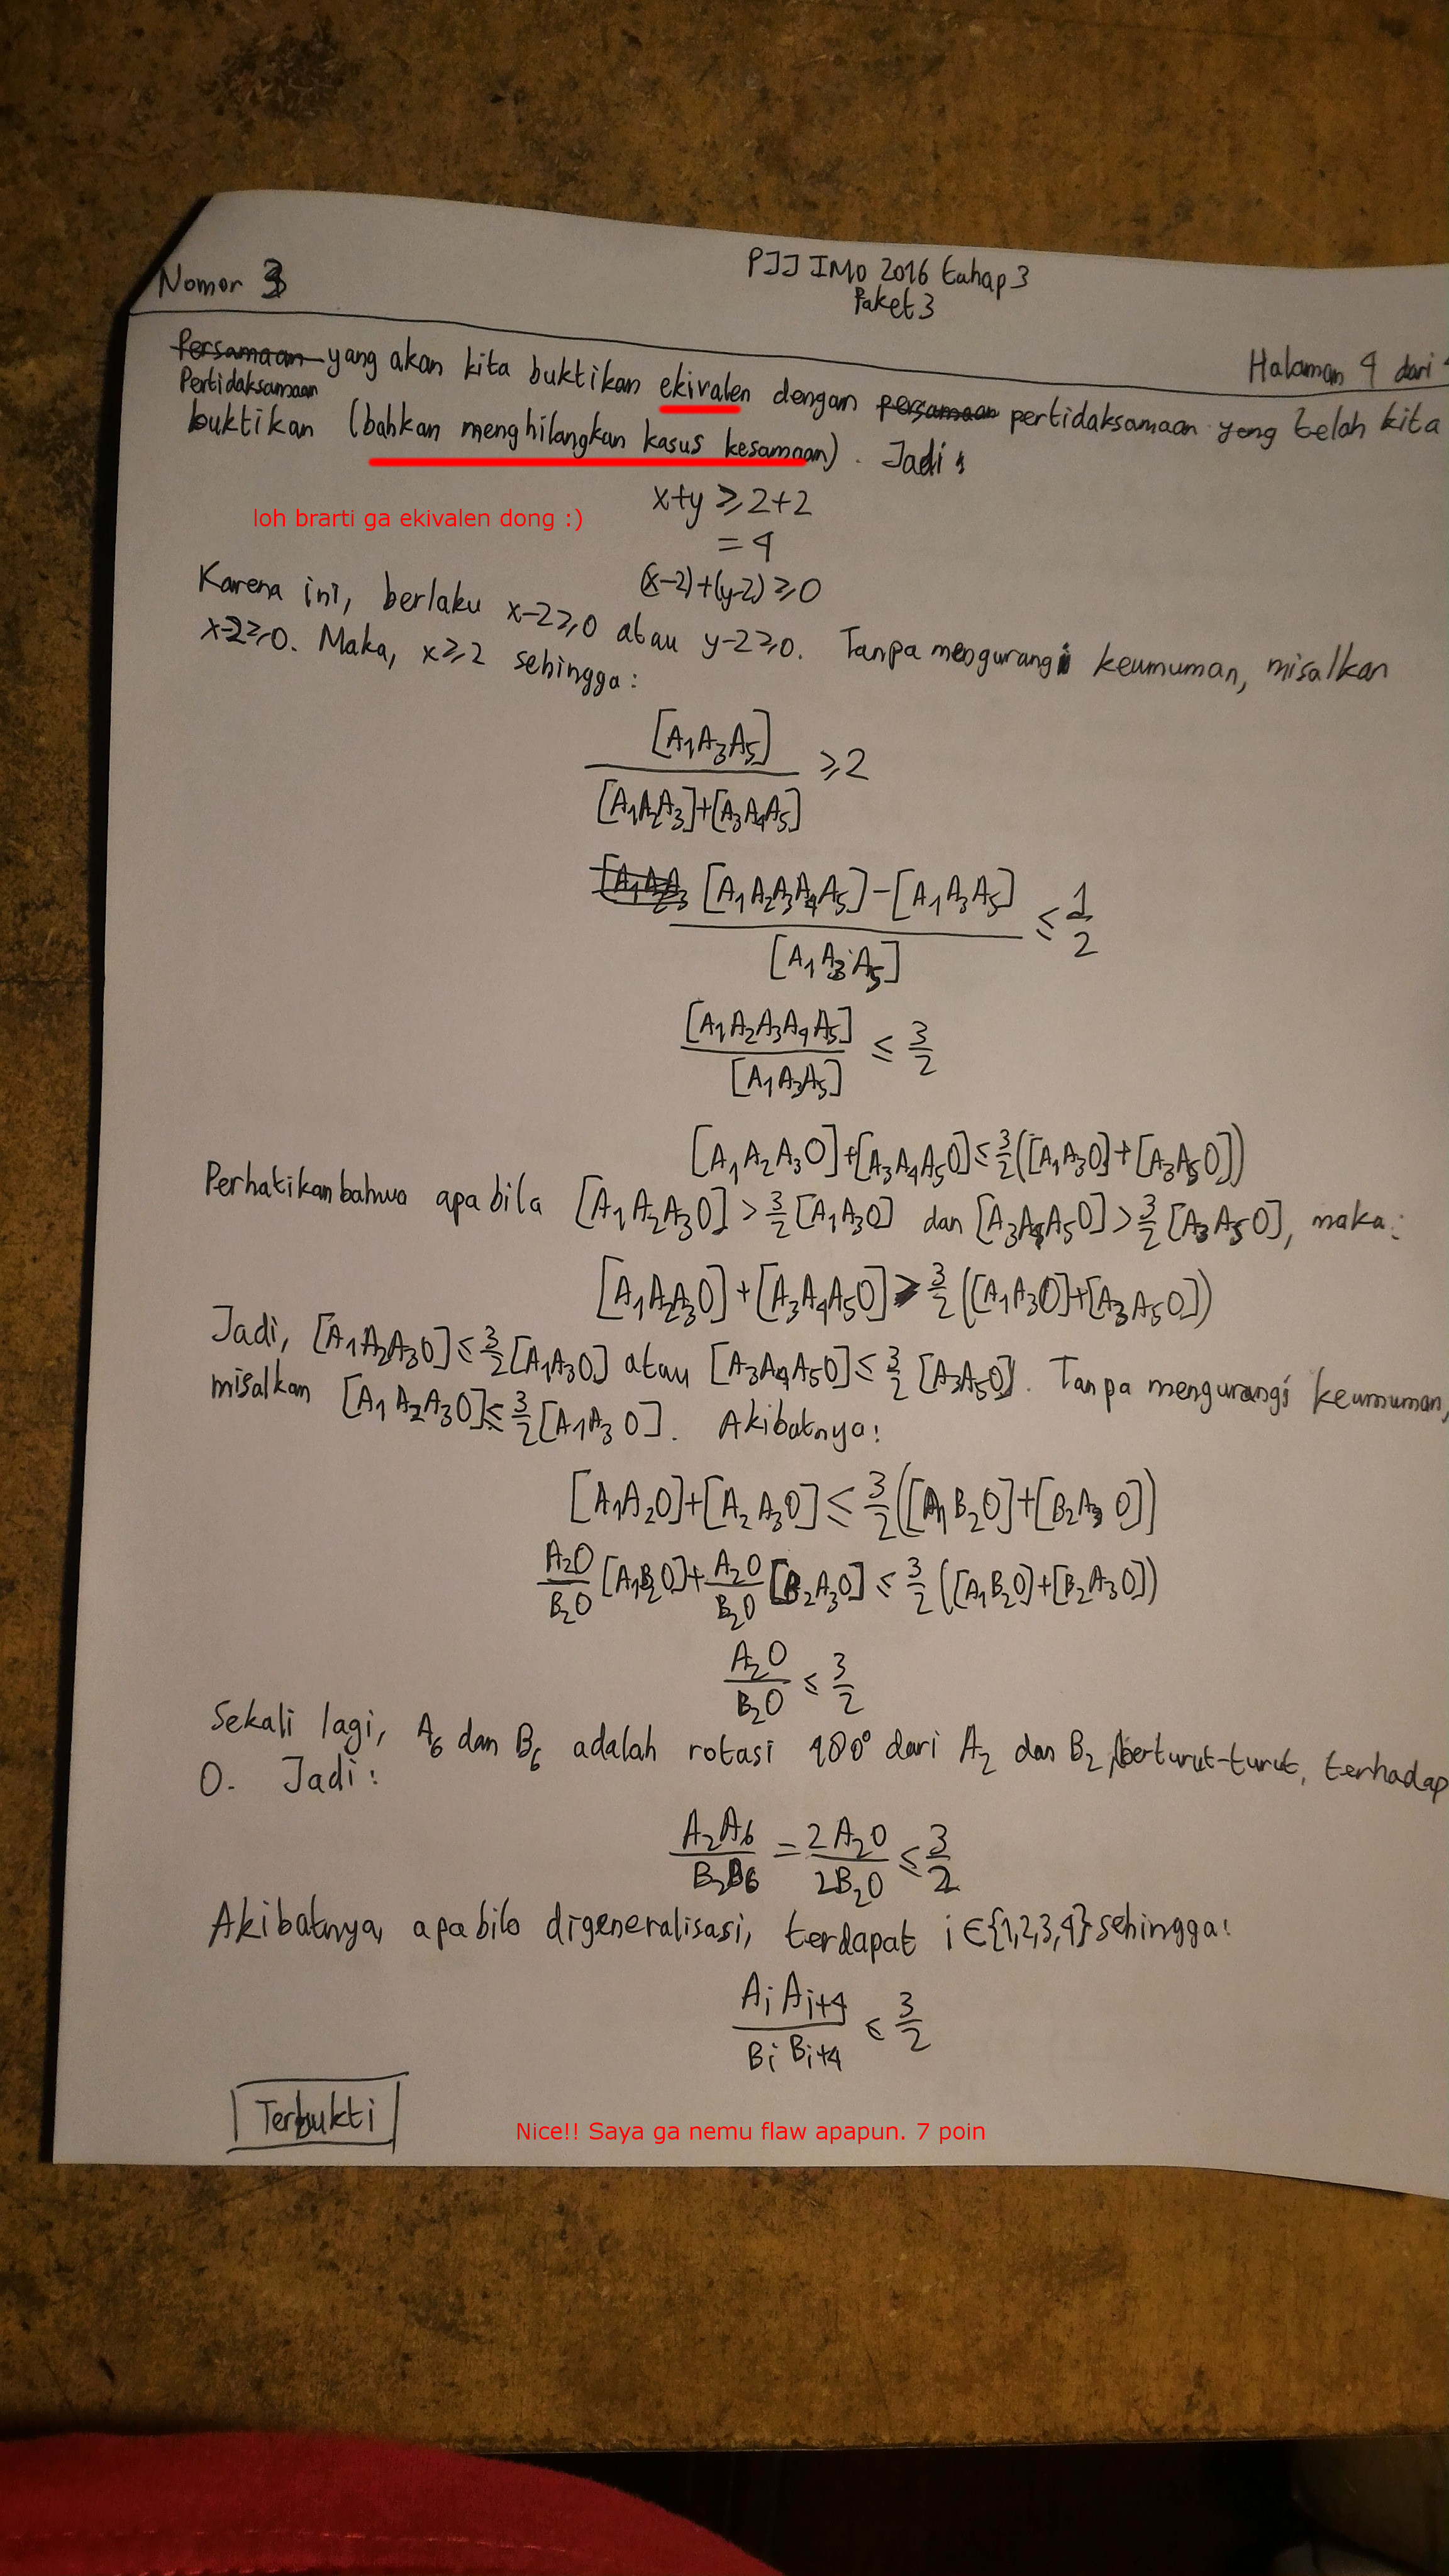 Nomor 3
PJJ IMO 2016 tahap 3
Paket 3
Halaman 4 dari
Persamaan yang akan kita buktikan ekivalen dengan persamaan pertidaksamaan yang telah kita
Pertidaksamaan
buktikan (bahkan menghilangkan kasus kesamaan). Jadi:
x+y ≥ 2+2
loh brarti ga ekivalen dong :)
= 4
(x-2)+(y-2) ≥ 0
Karena ini, berlaku x-2≥0 atau y-2≥0. Tanpa mengurangi keumuman, misalkan
x-2≥0. Maka, x≥2 sehingga:
[A₁A₃A₅] / ([A₁A₂A₃]+[A₃A₄A₅]) ≥ 2
([A₁A₂A₃A₄A₅]-[A₁A₃A₅]) / [A₁A₃A₅] ≤ 1/2
[A₁A₂A₃A₄A₅] / [A₁A₃A₅] ≤ 3/2
[A₁A₂A₃O]+[A₃A₄A₅O] ≤ 3/2([A₁A₃O]+[A₃A₅O])
Perhatikan bahwa apabila [A₁A₂A₃O] > 3/2 [A₁A₃O] dan [A₃A₄A₅O] > 3/2 [A₃A₅O], maka:
[A₁A₂A₃O]+[A₃A₄A₅O] > 3/2([A₁A₃O]+[A₃A₅O])
Jadi, [A₁A₂A₃O] ≤ 3/2 [A₁A₃O] atau [A₃A₄A₅O] ≤ 3/2 [A₃A₅O]. Tanpa mengurangi keumuman,
misalkan [A₁A₂A₃O] ≤ 3/2 [A₁A₃O]. Akibatnya:
[A₁A₂O]+[A₂A₃O] ≤ 3/2([A₁B₂O]+[B₂A₃O])
A₂O/B₂O [A₁B₂O] + A₂O/B₂O [B₂A₃O] ≤ 3/2([A₁B₂O]+[B₂A₃O])
A₂O/B₂O ≤ 3/2
Sekali lagi, A₆ dan B₆ adalah rotasi 180° dari A₂ dan B₂, berturut-turut, terhadap
O. Jadi:
A₂A₆/B₂B₆ = 2A₂O/2B₂O ≤ 3/2
Akibatnya, apabila digeneralisasi, terdapat i∈{1,2,3,4} sehingga:
AᵢAᵢ₊₄/BᵢBᵢ₊₄ ≤ 3/2
Terbukti
Nice!! Saya ga nemu flaw apapun. 7 poin